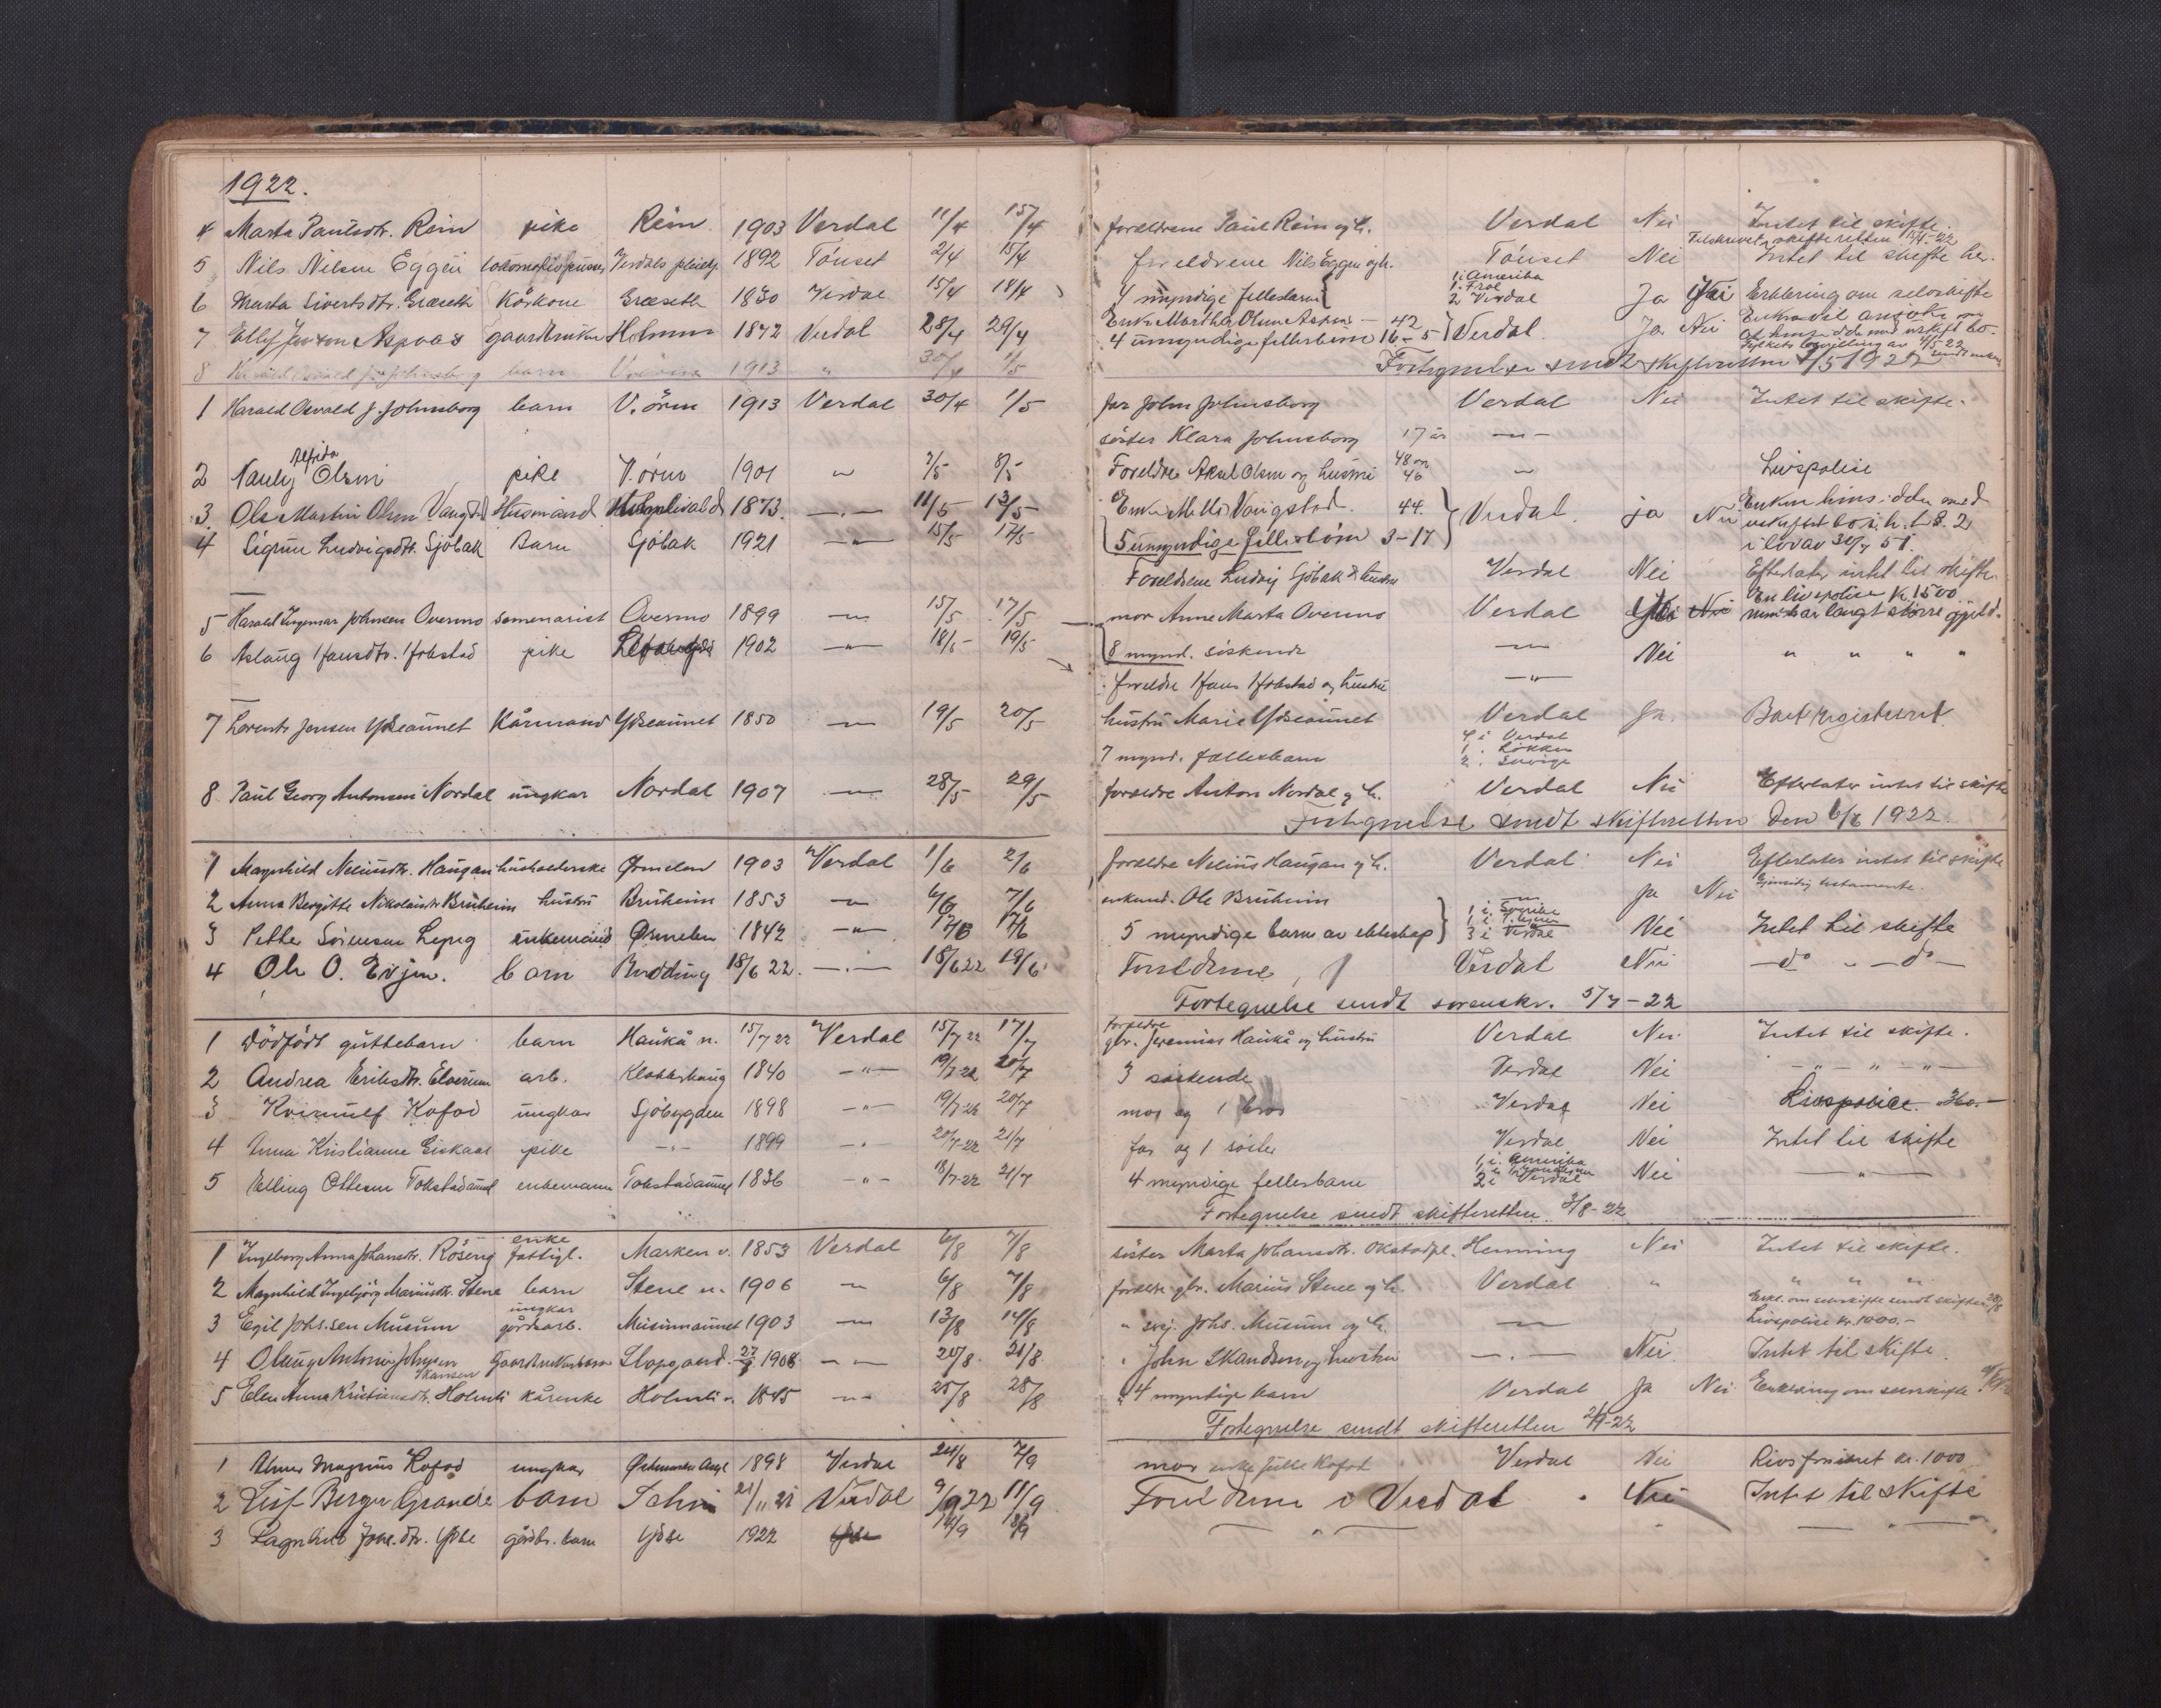 1922.
4 Marta Paulsdtr. Rein pike Rein 1903 Verdal 11/4 15/4 forældrene Paul Rein og h. Verdal Nei Intet til skifte.
Tilskrevet skifteretten 15/4-22
5 Nils Nilsen Eggen Verdals 1892 Tønset 2/4 15/4 foreldrene Nils Eggen og h. Tønset Nei Intet til skifte her.
6 Marta Sivertsdtr. Græseth Kårkone Græseth 1830 Verdal 15/4 18/4 4 myndige fellesbarn { 1 i Amerika 1 i Frol 2 Verdal Ja Nei Erklæring om selvskifte
7 Ellef Jensen Aspaas gaardbruker Holmen 1842 Verdal 28/4 29/4 Enke Martha Olsen Aspaas – 42 } Verdal Ja Nei Enken vil ansøke om
4 umyndige fellesbørn 16-5 at hensidde med uskift bo.
Fylkets bevilling av 4/5-22 sendt enken
8 Harald Osvald J. Johnsborg barn V. øren 1913 " 30/4 1/5 Fortegnelse sendt skifteretten 1/5 1922
1 Harald Osvald J. Johnsborg barn V. ören 1913 Verdal 30/4 1/5 far John Johnsborg Verdal Nei Intet til skifte.
söster Klara Johnsborg 17 år — " —
2 Nanly Alfrida Olsen pike V. ören 1901 " 8/5 Foreldre Aksel Olsen og hustru 48 og 46 " Livspolise
3. Ole Martin Olsen Vangstad Husmand 1873. —.— 11/5 13/5 Enke Vangstad. 44. } Verdal. ja Nei Enken hens. idde med
uskiftet bo i h. t. § 2
i lov av 30/7 51.
4 Sigrun Ludvigsdtr. Sjöbak Barn Sjöbak 1921 —"— 15/5 17/5 5 umyndige fellesbörn 3-17
Foreldrene Ludvig Sjöbak & hustru Verdal Nei Efterlater intet til skifte.
5 Harald Ingemar Johnsen Overmo semenarist Overmo 1899 —"— 15/5 17/5 mor Anne Marta Overmo Verdal Nei En livspolise kr. 1500
men har langt större gjæld.
6 Aslaug Hansdtr. Hofstad pike 1902 —"— 18/5 19/5 8 mynd. söskende —"— Nei " " " "
foreldre Hans Hofstad og hustru —"—
7 Lorents Jensen Ydseaunet Kårmand Ydseaunet 1850 —"— 19/5 20/5 hustru Marie Ydseaunet Verdal Ja. Boet registreret
7 mynd. fællesbarn 4 i Verdal 1 " Løkken 2 " Sverige
8 Paul Georg Antonsen Nordal ungkar Nordal 1907 —"— 28/5 29/5 forældre Anton Nordal og h. Verdal Nei Efterlater intet til skifte
Fortegnelse sendt skifteretten den 6/6 1922.
1 Magnhild Neliusdtr. Haugan husholderske Ørmelen 1903 Verdal 1/6 2/6 forældre Nelius Haugan og h. Verdal Nei Efterlater intet til skifte
2 Anna Bergitte Nikolaisdtr Bruheim hustru Bruheim 1853 —"— 6/6 7/6 enkemd. Ole Bruheim —"— Ja Nei Gjensidig testamente.
3 Petter Sörensen enkemand Ørmelen 1842 —"— 17/6 5 myndige barn av ekteskap } 1 i Sverige 3 i Verdal Nei Intet til skifte
4 Ole O. Evjen. barn Budding 18/6 22. —.— 18/6 22 19/6 Foreldrene Verdal Nei —do " —do—
Fortegnelse sendt sorenskr. 5/7-22
1 Dödfödt guttebarn barn Haukå n. 15/7 22 Verdal 15/7 22 17/7 foreldre gbr. Jeremias Haukå og hustru Verdal Nei Intet til skifte.
2 Andrea Eriksdtr. Elverum arb. Klokkerhaug 1840 —"— 19/7-22 20/7 3 søskende Verdal Nei —"—"—"—
3 Kofod ungkar Sjöbygden 1898 —"— 19/7-22 20/7 mor og 1 bror Verdal Nei Livspolice
4 Anna Kristianne Giskaas pike —"— 1899 —"— 20/7-22 21/7 far og 1 söster Verdal Nei Intet til skifte
5 Elling Ottesen Tokstadaunet enkemann Tokstadaunet 1836 —"— 18/7-22 21/7 4 myndige fellesbarn 1 i Amerika 2 i Verdal Nei —"—
Fortegnelse sendt skifteretten 3/8-22
1 Ingeborg Anna Johansdtr. Röseng enke fattigl. Marken v. 1853 Verdal 6/8 7/8 söster Marta Johansdtr. Okstadpl. Henning Nei Intet til skifte.
2 Magnhild Ingebjörg Mariusdtr. Stene barn Stene n. 1906 —"— 6/8 7/8 forældre gbr. Marius Stene og h. Verdal " " " "
3 Egil Johs.sen Musum ungkar gårdsarb. Musumaunet 1903 —"— 13/8 14/8 " Johs. Musum og h. —"— Erkl. om selvskifte sendt skifter. 28/8
Livspolise kr. 1000.-
4 Olaug Antonie Johnsen Skansen Gaardbrukerbarn 1908 —"— 20/8. 21/8. " John Skansen og hustru —.— Nei Intet til skifte.
5 Elen Anna Kristiansdtr. Holmli kårenke Holmli v. 1845 —"— 25/8 28/8 " 4 myndige barn Verdal Ja Nei Erklæring om selvskifte
Fortegnelse sendt skifteretten 2/9-22
1 Magnus Kofod ungkar 1898 Verdal 24/8 2/9 mor enke Julie Kofod Verdal Nei Livsforsikret kr. 1000
2 Leif Berger Grande barn 21/11 21 Verdal 9/9 22 11/9 Foreldrene i Verdal . Nei Intet til skifte
3 Ragnhild Johs. dtr. Ydse gårdbr. barn Ydse 1922 14/9 18/9 — " — " — " —